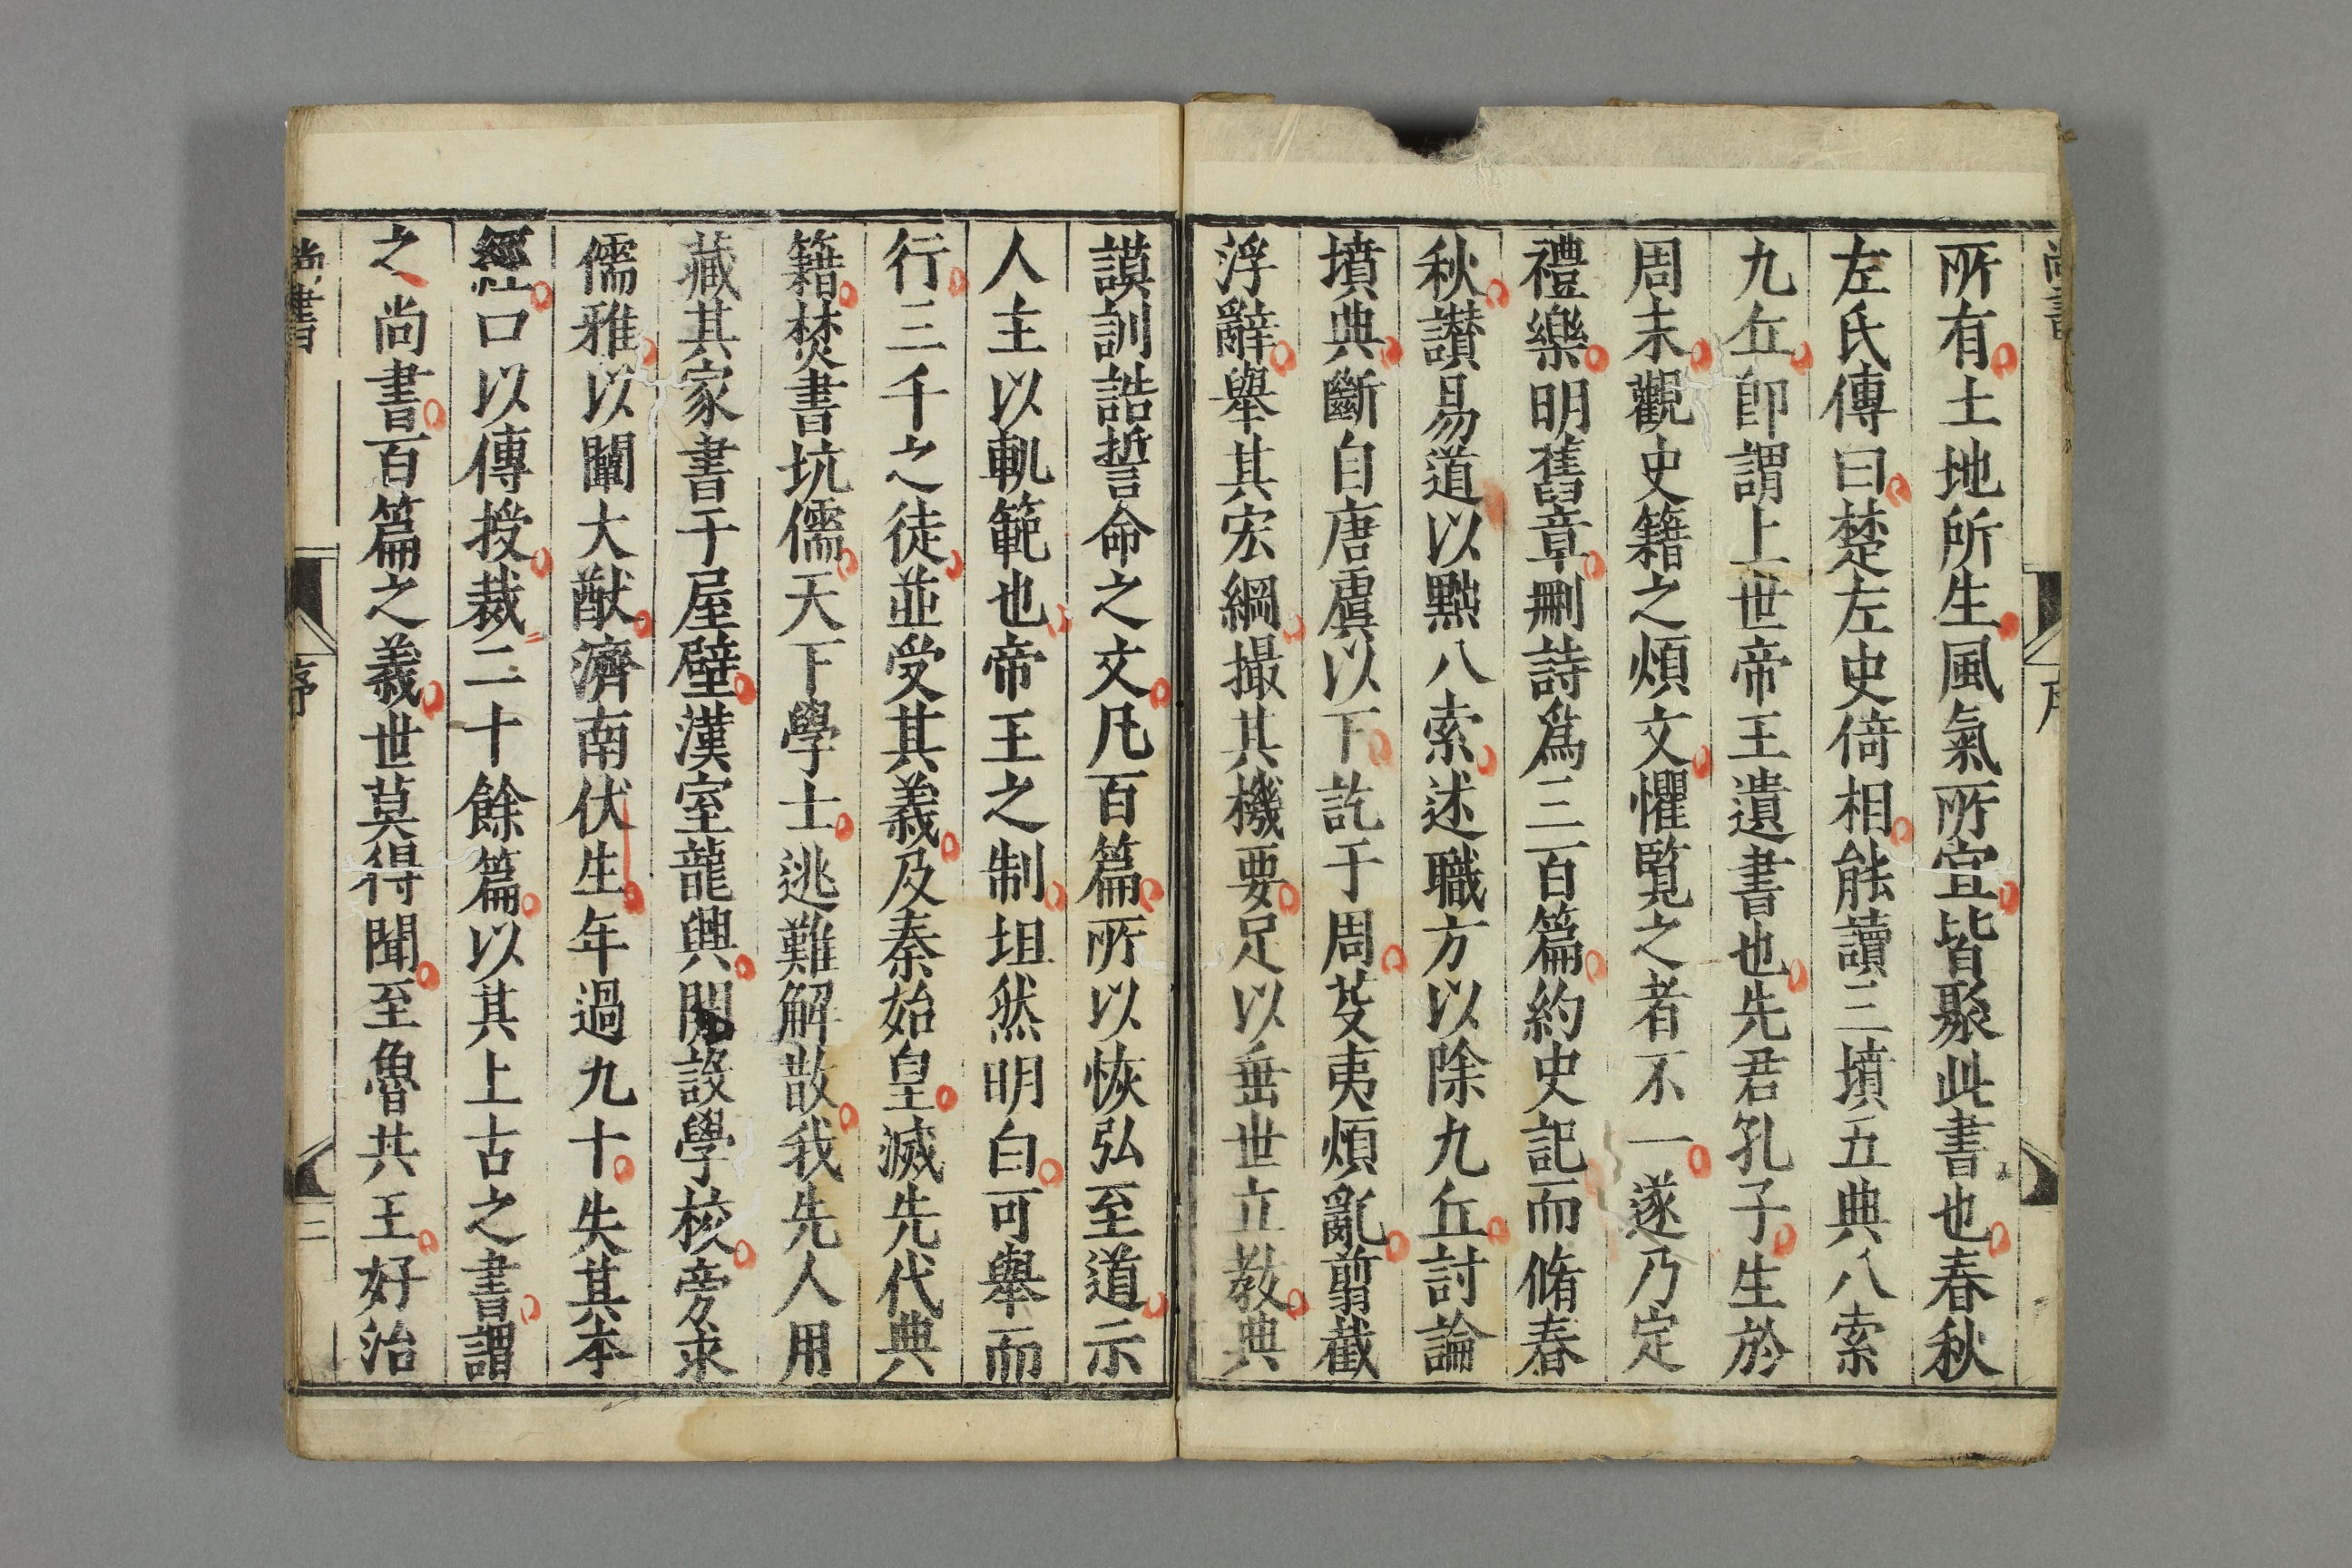 所有土地所生風氣所宜皆聚此書也春秋
左氏傳曰楚左史倚相能讀三墳五典八索
九丘卽謂上世帝王遺書也先君孔子生於
周末觀史籍之煩文懼覧之者不一遂乃定
禮樂明舊章刪詩爲三百篇約史記而脩春
秋讃易道以黜八索述職方以除九丘討論
墳典斷自唐虞以下訖于周芟夷煩亂翦截
浮辭舉其宏綱撮其機要足以垂世立教典
謨訓誥誓命之文凡百篇所以恢弘至道示
人主以軌範也帝王之制坦然明白可舉而
行三千之徒並受其義及秦始皇滅先代典
籍焚書坑儒天下學士逃難解散我先人用
藏其家書于屋壁漢室龍興開設學校旁求
儒雅以闡大猷濟南伏生年過九十失其本
經口以傳授裁二十餘篇以其上古之書謂
之尚書百篇之義世莫得聞至魯共王好治
尚書 序 二